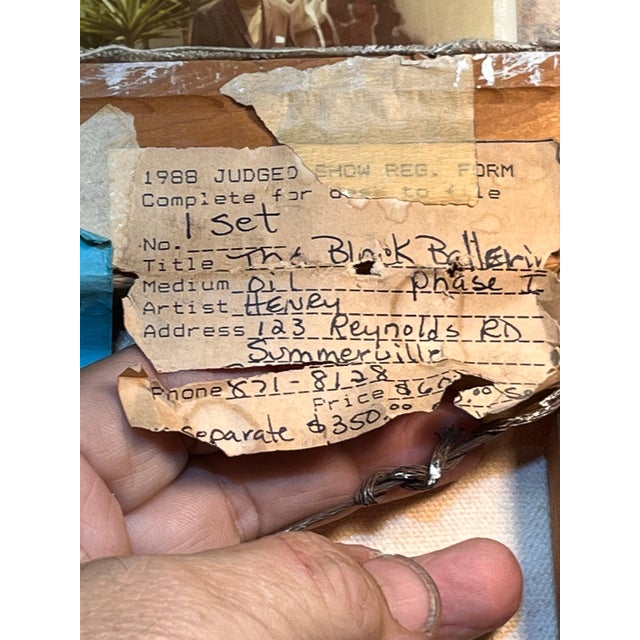 1988 JUDGED SHOW REG. FORM
Complete for desk to file
1 Set
No.
Title The Black Ballerin
Medium OIL phase I
Artist HENRY
Address 123 Reynolds RD
Summerville
Phone 871-8128
Price
Separate $350.00